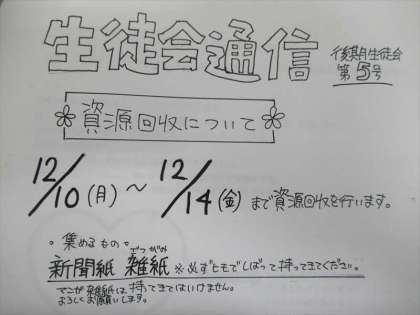 生徒会通信
後期生徒会
第5号
資源回収について
12/10(月)～12/14(金)まで資源回収を行います。
。集めるもの。
ざつがみ
新聞紙 雑紙 ※必ずヒモでしばって持ってきてください。
でこが雑紙は持ってきてはいけません。
よろしくお願いします。